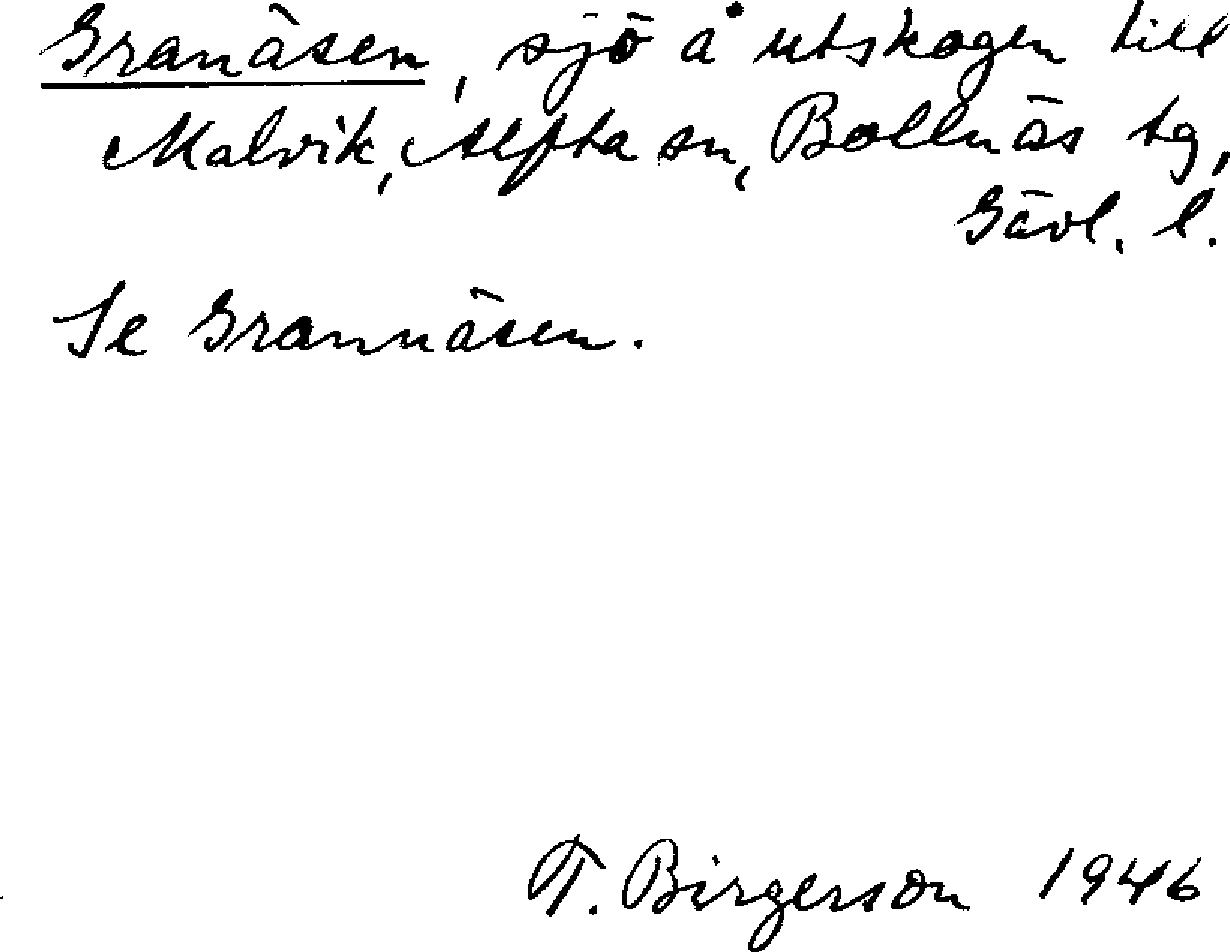 Granäsen, sjö å utskogen till
Malvik, Alfta sn, Bollnäs tg,
Gävl. l.
Se Grannäsen.
T. Birgerson 1946